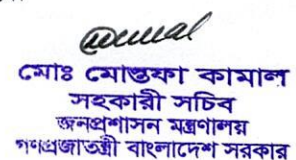 মোঃ মোস্তফা কামাল
সহকারী সচিব
জনপ্রশাসন মন্ত্রণালয়
গণপ্রজাতন্ত্রী বাংলাদেশ সরকার